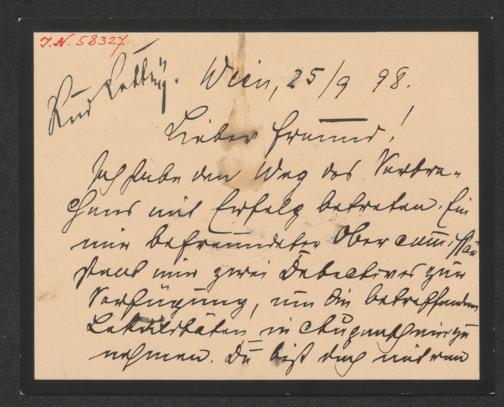 J.N. 58327
Wien, 25/9 98.
Lieber Freund!
Ich habe den Weg des Verbre-
chens mit Erfolg betreten. Ein
mir befreundeter Obercommissär
stellt mir zwei Detectives zur
Verfügung, um die betreffenden
Lokalitäten in Augenschein zu
nehmen. Du bist doch mit von